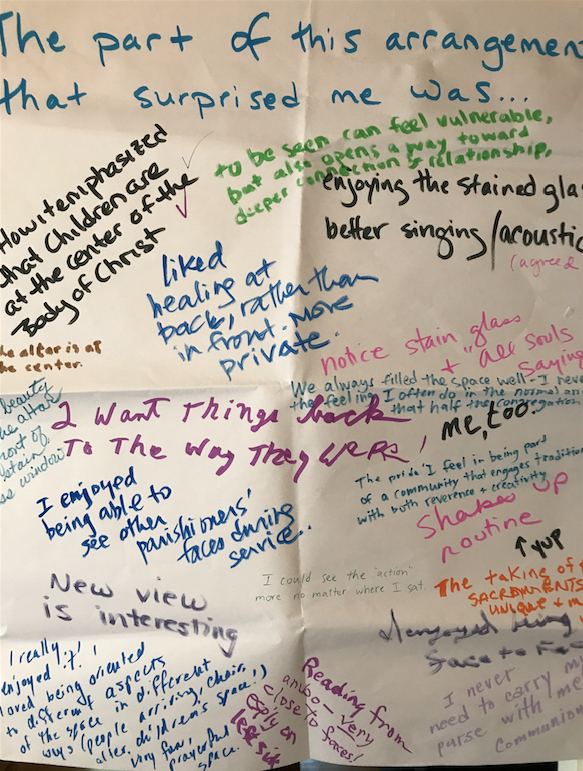 The part of this arrangemen
that surprised me was...
How it emphasized
that Children are
at the center of the
Body of Christ
to be seen can feel vulnerable,
but also opens a way toward
deeper connection & relationship.
enjoying the stained gla
better singing/acoustic
(agree &
liked
healing at
back, rather than
in front. More
private.
he alter is at
the center.
notice stain glass
+ "All Souls
saying
beauty
he altar
ront of
stain
ss window
We always filled the space well - I never
the feeling I often do in the normal arr
that half the congregation
me, too
I Want Things back
To The Way They Were,
The pride I feel in being part
of a community that engages tradition
with both reverence & creativity
I enjoyed
being able to
see other
parishioners'
faces during
service.
Shakes up
routine
↑ yup
I could see the "action"
more no matter where I sat.
The taking of
SACRAMENTS
UNIQUE + m
New view
is interesting
I enjoyed being
face to Face
I really
enjoyed it!
loved being oriented
to different aspects
of the space in different
ways (people arriving, choir,
alter, children's space!)
very fun, prayerful
space.
Reading from
ambo - very
close to faces!
only on
left side
I never
need to carry m
purse with me
Communion